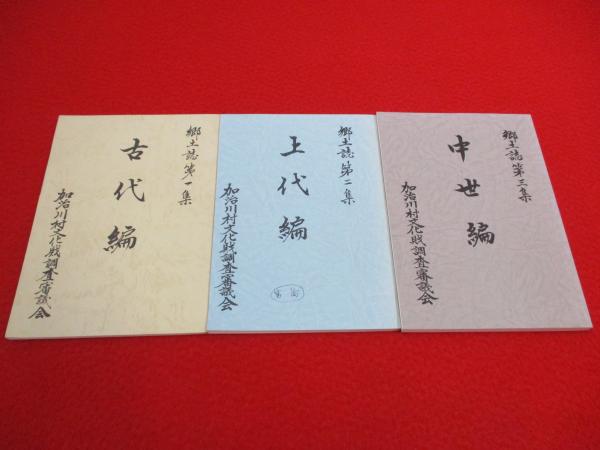 郷土誌第一集
古代編
加治川村文化財調査審議会
郷土誌第二集
上代編
加治川村文化財調査審議会
郷土誌第三集
中世編
加治川村文化財調査審議会